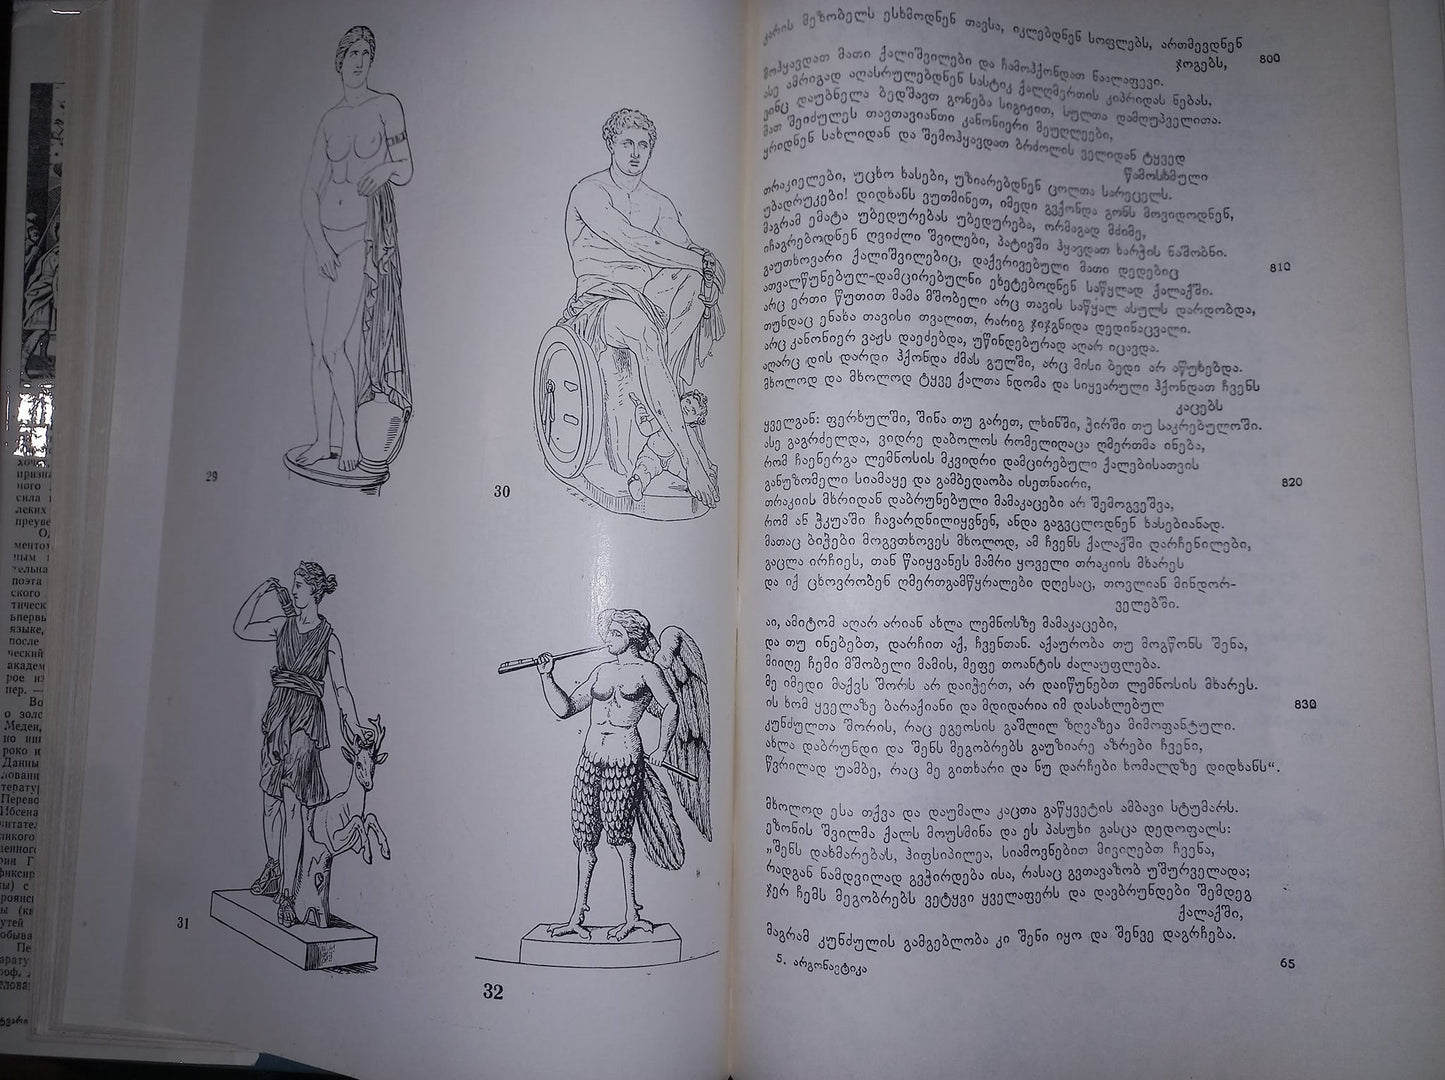 29
30
31
32
კარის მეზობელს ესხმოდნენ თავსა, იკლებდნენ სოფლებს, ართმევდნენ
ჯოგებს, 800
მოჰყავდათ მათი ქალიშვილები და ჩამოჰქონდათ ნაალაფევი.
ასე ამრიგად აღასრულებდნენ სასტიკ ქალღმერთის კიპრიდას ნებას,
ვინც დაუბნელა ბედშავთ გონება სიგიჟით, სულთა დამღუპველითა.
მათ შეიძულეს თავთავიანთი კანონიერი მეუღლეები,
ყრიდნენ სახლიდან და შემოჰყავდათ ბრძოლის ველიდან ტყვედ
წამოსხმული
თრაკიელები, უცხო ხასები, უზიარებდნენ ცოლთა სარეცელს.
უბადრუკები! დიდხანს ვუთმინეთ, იმედი გვქონდა გონს მოვიდოდნენ,
მაგრამ ემატა უბედურებას უბედურება, ორმაგად მძიმე,
იჩაგრებოდნენ ღვიძლი შვილები, პატივში ჰყავდათ ხარჭის ნაშობნი.
გაუთხოვარი ქალიშვილებიც, დაქვრივებული მათი დედებიც 810
ათვალწუნებულ-დამცირებულნი ეხეტებოდნენ საწყლად ქალაქში.
არც ერთი წუთით მამა მშობელი არც თავის საწყალ ასულს დარდობდა,
თუნდაც ენახა თავისი თვალით, რარიგ ჯიჯგნიდა დედინაცვალი.
არც კანონიერ ვაჟს დაეძებდა, უწინდებურად აღარ იცავდა.
აღარც დის დარდი ჰქონდა ძმას გულში, არც მისი ბედი არ აწუხებდა.
მხოლოდ და მხოლოდ ტყვე ქალთა ნდომა და სიყვარული ჰქონდათ ჩვენს
კაცებს
ყველგან: ფერხულში, შინა თუ გარეთ, ლხინში, ჭირში თუ საკრებულოში.
ასე გაგრძელდა, ვიდრე დაბოლოს რომელიდაცა ღმერთმა ინება,
რომ ჩაენერგა ლემნოსის მკვიდრი დამცირებული ქალებისათვის
განუზომელი სიამაყე და გამბედაობა ისეთნაირი, 820
თრაკიის მხრიდან დაბრუნებული მამაკაცები არ შემოგვეშვა,
რომ ან ჭკუაში ჩავარდნილიყვნენ, ანდა გაგვცლოდნენ ხასებიანად.
მათაც ბიჭები მოგვთხოვეს მხოლოდ, ამ ჩვენს ქალაქში დარჩენილები,
გაცლა ირჩიეს, თან წაიყვანეს მამრი ყოველი თრაკიის მხარეს
და იქ ცხოვრობენ ღმერთგამწყრალები დღესაც, თოვლიან მინდორ-
ველებში.
აი, ამიტომ აღარ არიან ახლა ლემნოსზე მამაკაცები,
და თუ ინებებთ, დარჩით აქ, ჩვენთან. აქაურობა თუ მოგწონს შენა,
მიიღე ჩემი მშობელი მამის, მეფე თოანტის ძალაუფლება.
მე იმედი მაქვს შორს არ დაიჭერთ, არ დაიწუნებთ ლემნოსის მხარეს.
ის ხომ ყველაზე ბარაქიანი და მდიდარია იმ დასახლებულ 830
კუნძულთა შორის, რაც ეგეოსის გაშლილ ზღვაზეა მიმოფანტული.
ახლა დაბრუნდი და შენს მეგობრებს გაუზიარე აზრები ჩვენი,
წვრილად უამბე, რაც მე გითხარი და ნუ დარჩები ხომალდზე დიდხანს“.
მხოლოდ ესა თქვა და დაუმალა კაცთა გაწყვეტის ამბავი სტუმარს.
ეზონის შვილმა ქალს მოუსმინა და ეს პასუხი გასცა დედოფალს:
„შენს დახმარებას, ჰიფსიპილეა, სიამოვნებით მივიღებთ ჩვენა,
რადგან ნამდვილად გვჭირდება ისა, რასაც გვთავაზობ უშურველადა;
ჯერ ჩემს მეგობრებს ვეტყვი ყველაფერს და დავბრუნდები შემდეგ
ქალაქში,
მაგრამ კუნძულის გამგებლობა კი შენი იყო და შენვე დაგრჩება.
5. არგონავტიკა 65